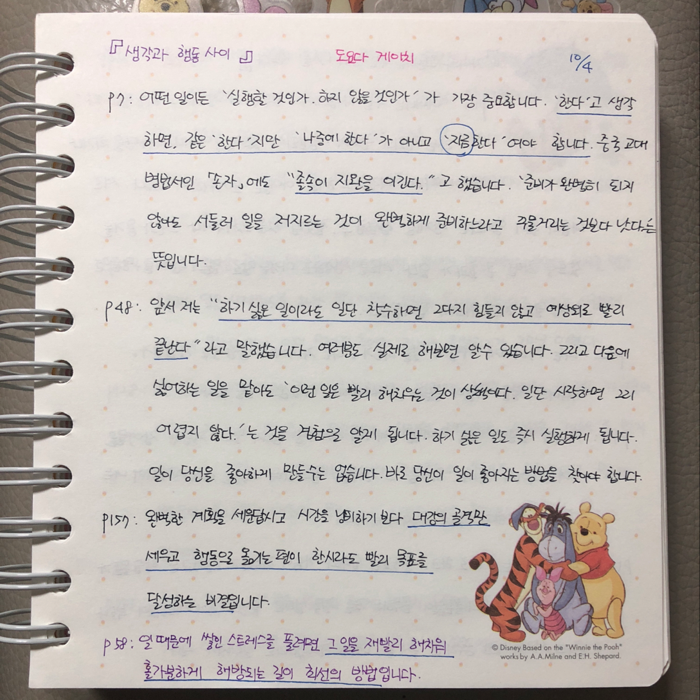 『생각과 행동 사이』 도요다 게이치 10/4
p7: 어떤 일이든 '실행할 것인가. 하지 않을 것인가'가 가장 중요합니다. '한다'고 생각
하면, 같은 '한다'지만 '나중에 한다'가 아니고 '지금한다'여야 합니다. 중국 고대
병법서인 「손자」에도 "졸속이 지완을 이긴다."고 했습니다. '준비가 완벽히 되지
않아도 서둘러 일을 저지르는 것이 완벽하게 준비하느라고 꾸물거리는 것보다 낫다'는
뜻입니다.
p48: 앞서 저는 "하기 싫은 일이라도 일단 착수하면 그다지 힘들지 않고 예상외로 빨리
끝난다"라고 말했습니다. 여러분도 실제로 해보면 알수 있습니다. 그리고 다음에
싫어하는 일을 맡아도 '이런 일은 빨리 해치우는 것이 상책이다. 일단 시작하면 그리
어렵지 않다.'는 것을 경험으로 알게 됩니다. 하기 싫은 일도 즉시 실행하게 됩니다.
일이 당신을 좋아하게 만들수는 없습니다. 바로 당신이 일이 좋아지는 방법을 찾아야 합니다.
p157: 완벽한 계획을 세운답시고 시간을 낭비하기 보다 대강의 골격만
세우고 행동으로 옮기는 편이 한시라도 빨리 목표를
달성하는 비결입니다.
p58: 일 때문에 쌓인 스트레스를 풀려면 그 일을 재빨리 해치워
홀가분하게 해방되는 길이 최선의 방법입니다.
© Disney Based on the "Winnie the Pooh"
works by A.A.Milne and E.H. Shepard.